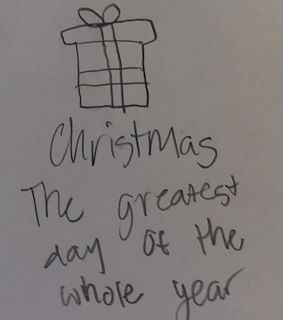 Christmas
The greatest
day of the
whole year